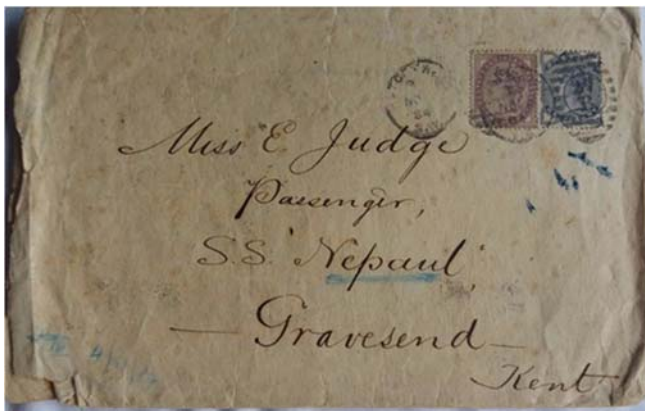 Miss E Judge
Passenger,
S.S. 'Nepaul',
Gravesend
Kent